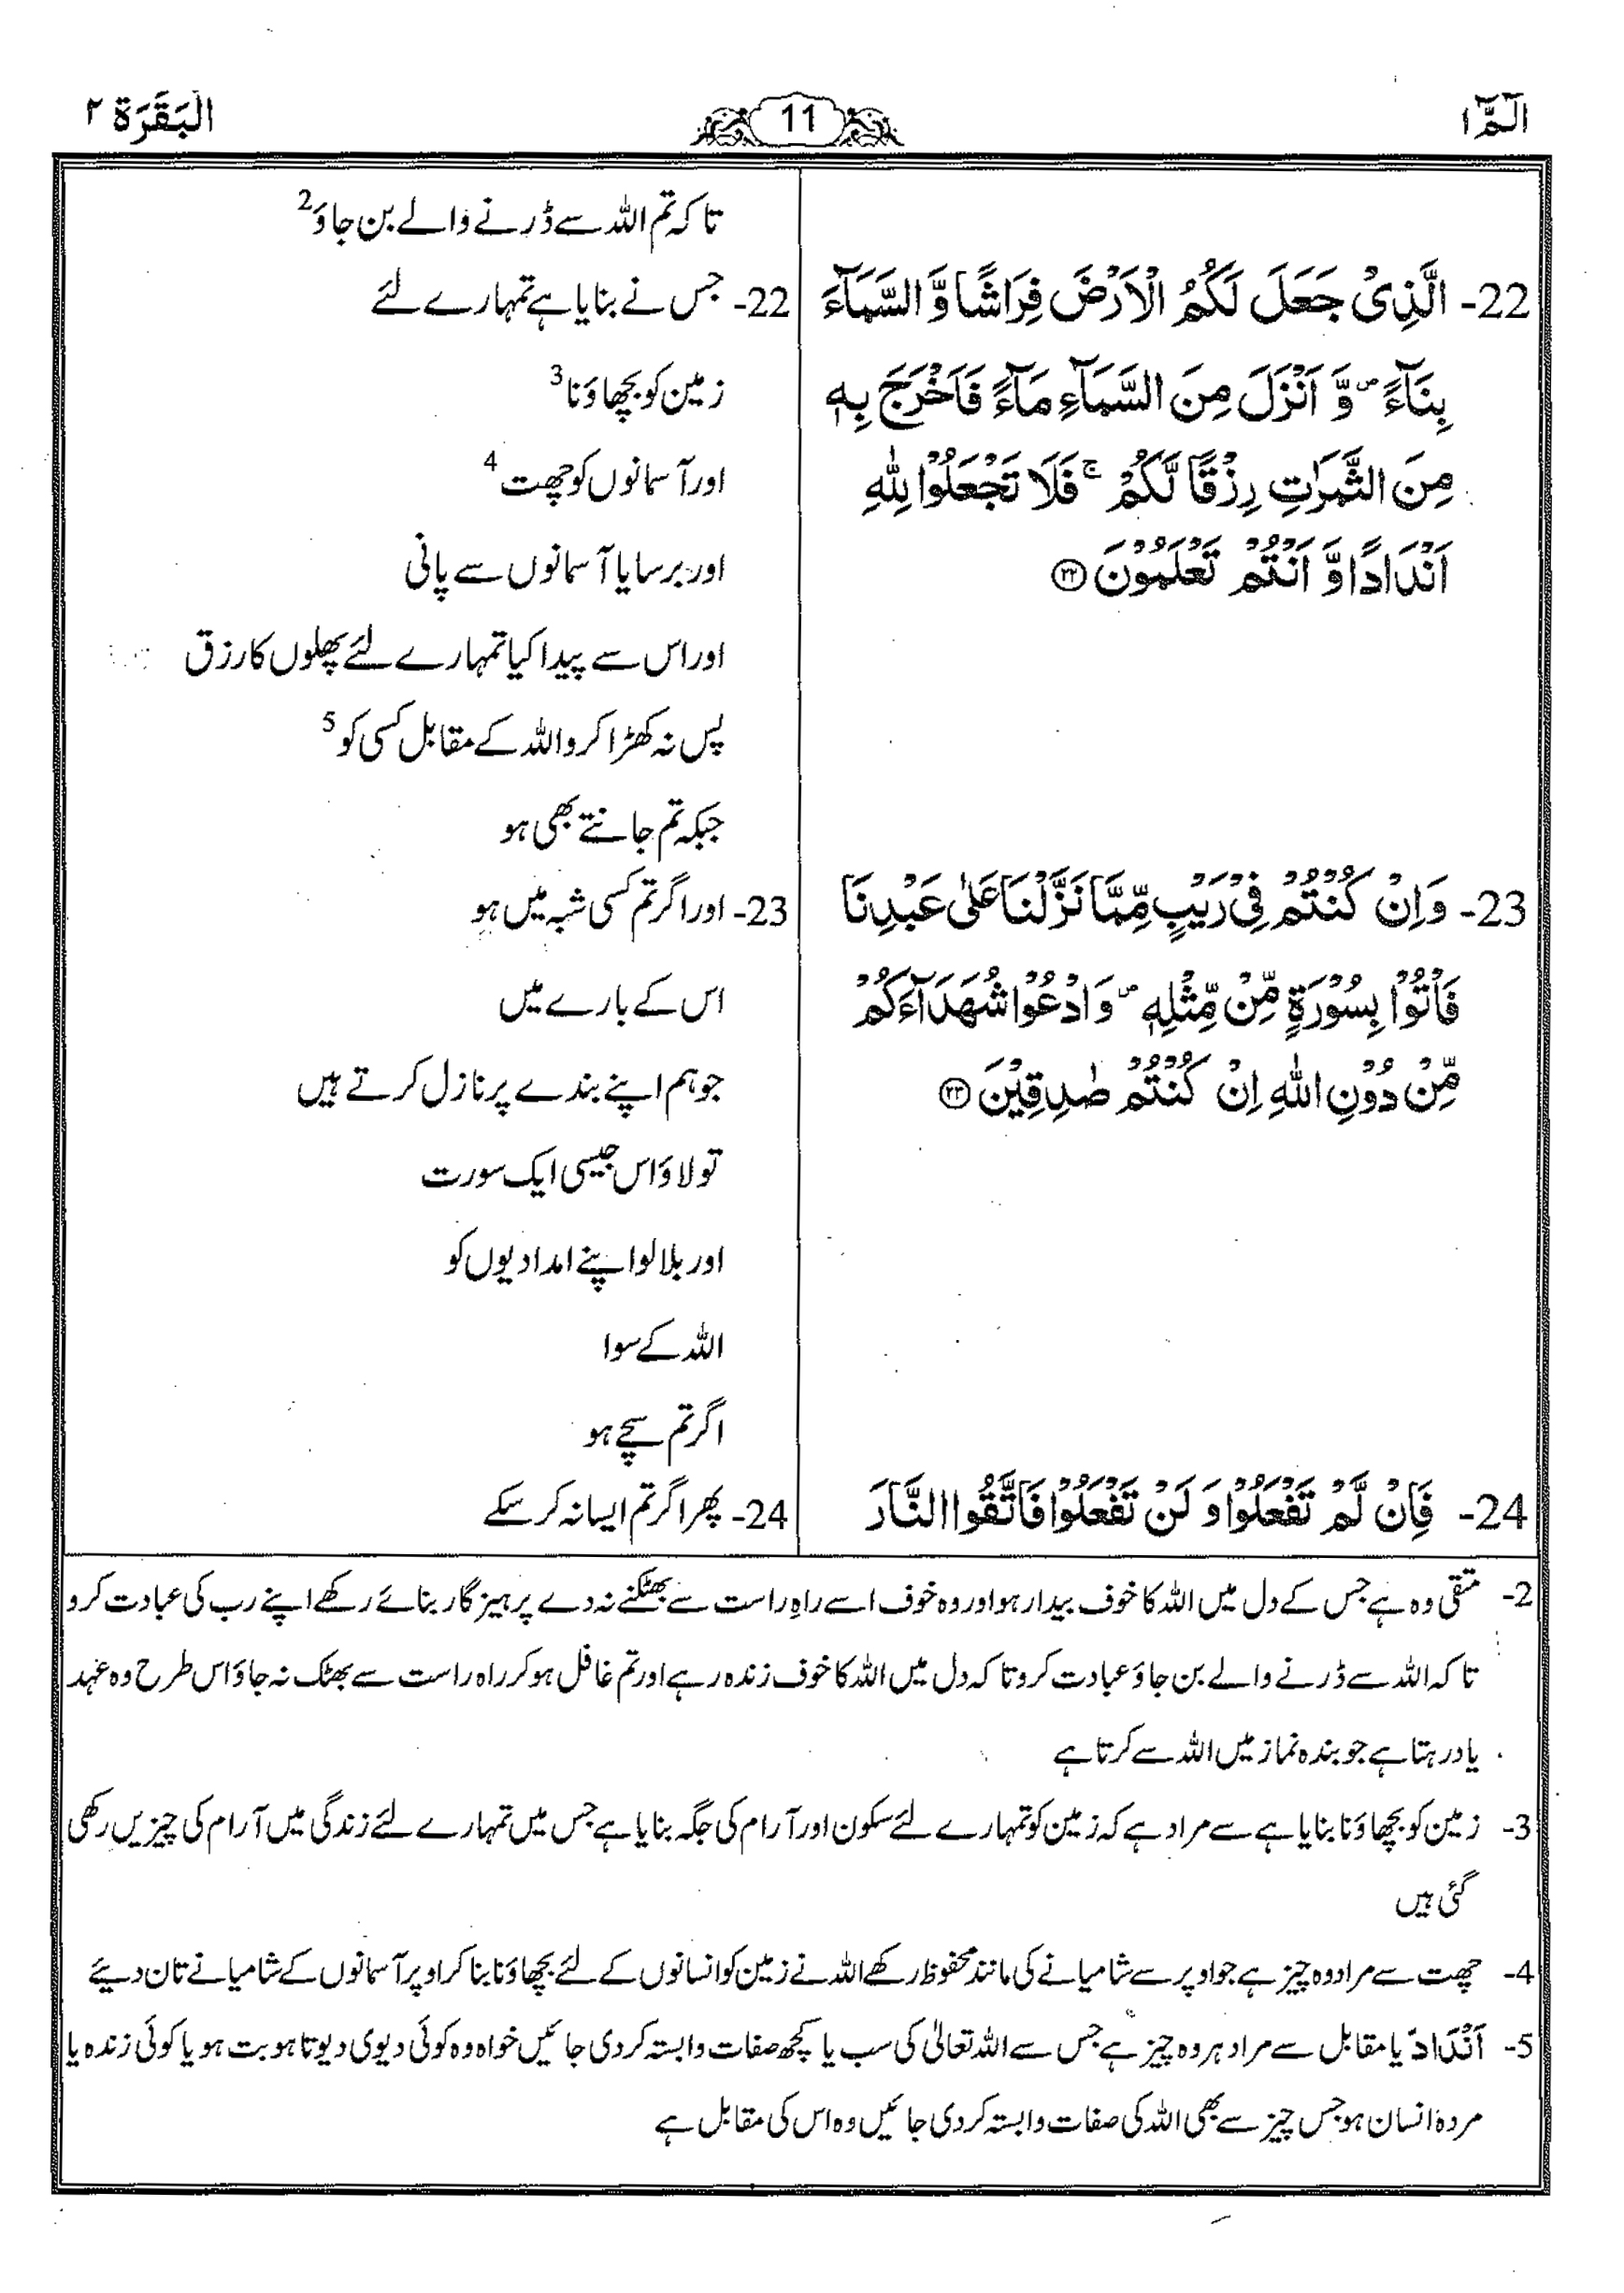 الٓمّٓ ۱
11
اَلْبَقَرَة ۲
22- الَّذِیْ جَعَلَ لَكُمُ الْاَرْضَ فِرَاشًا وَّ السَّمَآءَ
بِنَآءً ۪ وَّ اَنْزَلَ مِنَ السَّمَآءِ مَآءً فَاَخْرَجَ بِهٖ
مِنَ الثَّمَرٰتِ رِزْقًا لَّكُمْ ۚ فَلَا تَجْعَلُوْا لِلّٰهِ
اَنْدَادًا وَّ اَنْتُمْ تَعْلَمُوْنَ ﴿۲۲﴾
23- وَ اِنْ كُنْتُمْ فِیْ رَیْبٍ مِّمَّا نَزَّلْنَا عَلٰی عَبْدِنَا
فَاْتُوْا بِسُوْرَةٍ مِّنْ مِّثْلِهٖ ۪ وَ ادْعُوْا شُهَدَآءَكُمْ
مِّنْ دُوْنِ اللّٰهِ اِنْ كُنْتُمْ صٰدِقِیْنَ ﴿۲۳﴾
24- فَاِنْ لَّمْ تَفْعَلُوْا وَ لَنْ تَفْعَلُوْا فَاتَّقُوا النَّارَ
تاکہ تم اللہ سے ڈرنے والے بن جاؤ2
22- جس نے بنایا ہے تمہارے لئے
زمین کو بچھاؤنا3
اور آسمانوں کو چھت4
اور برسایا آسمانوں سے پانی
اور اس سے پیدا کیا تمہارے لئے پھلوں کا رزق
پس نہ کھڑا کرو اللہ کے مقابل کسی کو5
جبکہ تم جانتے بھی ہو
23- اور اگر تم کسی شبہ میں ہو
اس کے بارے میں
جو ہم اپنے بندے پر نازل کرتے ہیں
تو لاؤ اس جیسی ایک سورت
اور بلا لو اپنے امدادیوں کو
اللہ کے سوا
اگر تم سچے ہو
24- پھر اگر تم ایسا نہ کر سکے
2- متقی وہ ہے جس کے دل میں اللہ کا خوف بیدار ہو اور وہ خوف اسے راہِ راست سے بھٹکنے نہ دے پرہیز گار بنائے رکھے اپنے رب کی عبادت کرو
تاکہ اللہ سے ڈرنے والے بن جاؤ عبادت کرو تاکہ دل میں اللہ کا خوف زندہ رہے اور تم غافل ہو کر راہ راست سے بھٹک نہ جاؤ اس طرح وہ عہد
یاد رہتا ہے جو بندہ نماز میں اللہ سے کرتا ہے
3- زمین کو بچھاؤنا بنایا ہے سے مراد ہے کہ زمین کو تمہارے لئے سکون اور آرام کی جگہ بنایا ہے جس میں تمہارے لئے زندگی میں آرام کی چیزیں رکھی
گئی ہیں
4- چھت سے مراد وہ چیز ہے جو اوپر سے شامیانے کی مانند محفوظ رکھے اللہ نے زمین کو انسانوں کے لئے بچھاؤنا بنا کر اوپر آسمانوں کے شامیانے تان دیئے
5- اَنْدَادً یا مقابل سے مراد ہر وہ چیز ہے جس سے اللہ تعالیٰ کی سب یا کچھ صفات وابستہ کر دی جائیں خواہ وہ کوئی دیوی دیوتا ہو بت ہو یا کوئی زندہ یا
مردہ انسان ہو جس چیز سے بھی اللہ کی صفات وابستہ کر دی جائیں وہ اس کی مقابل ہے